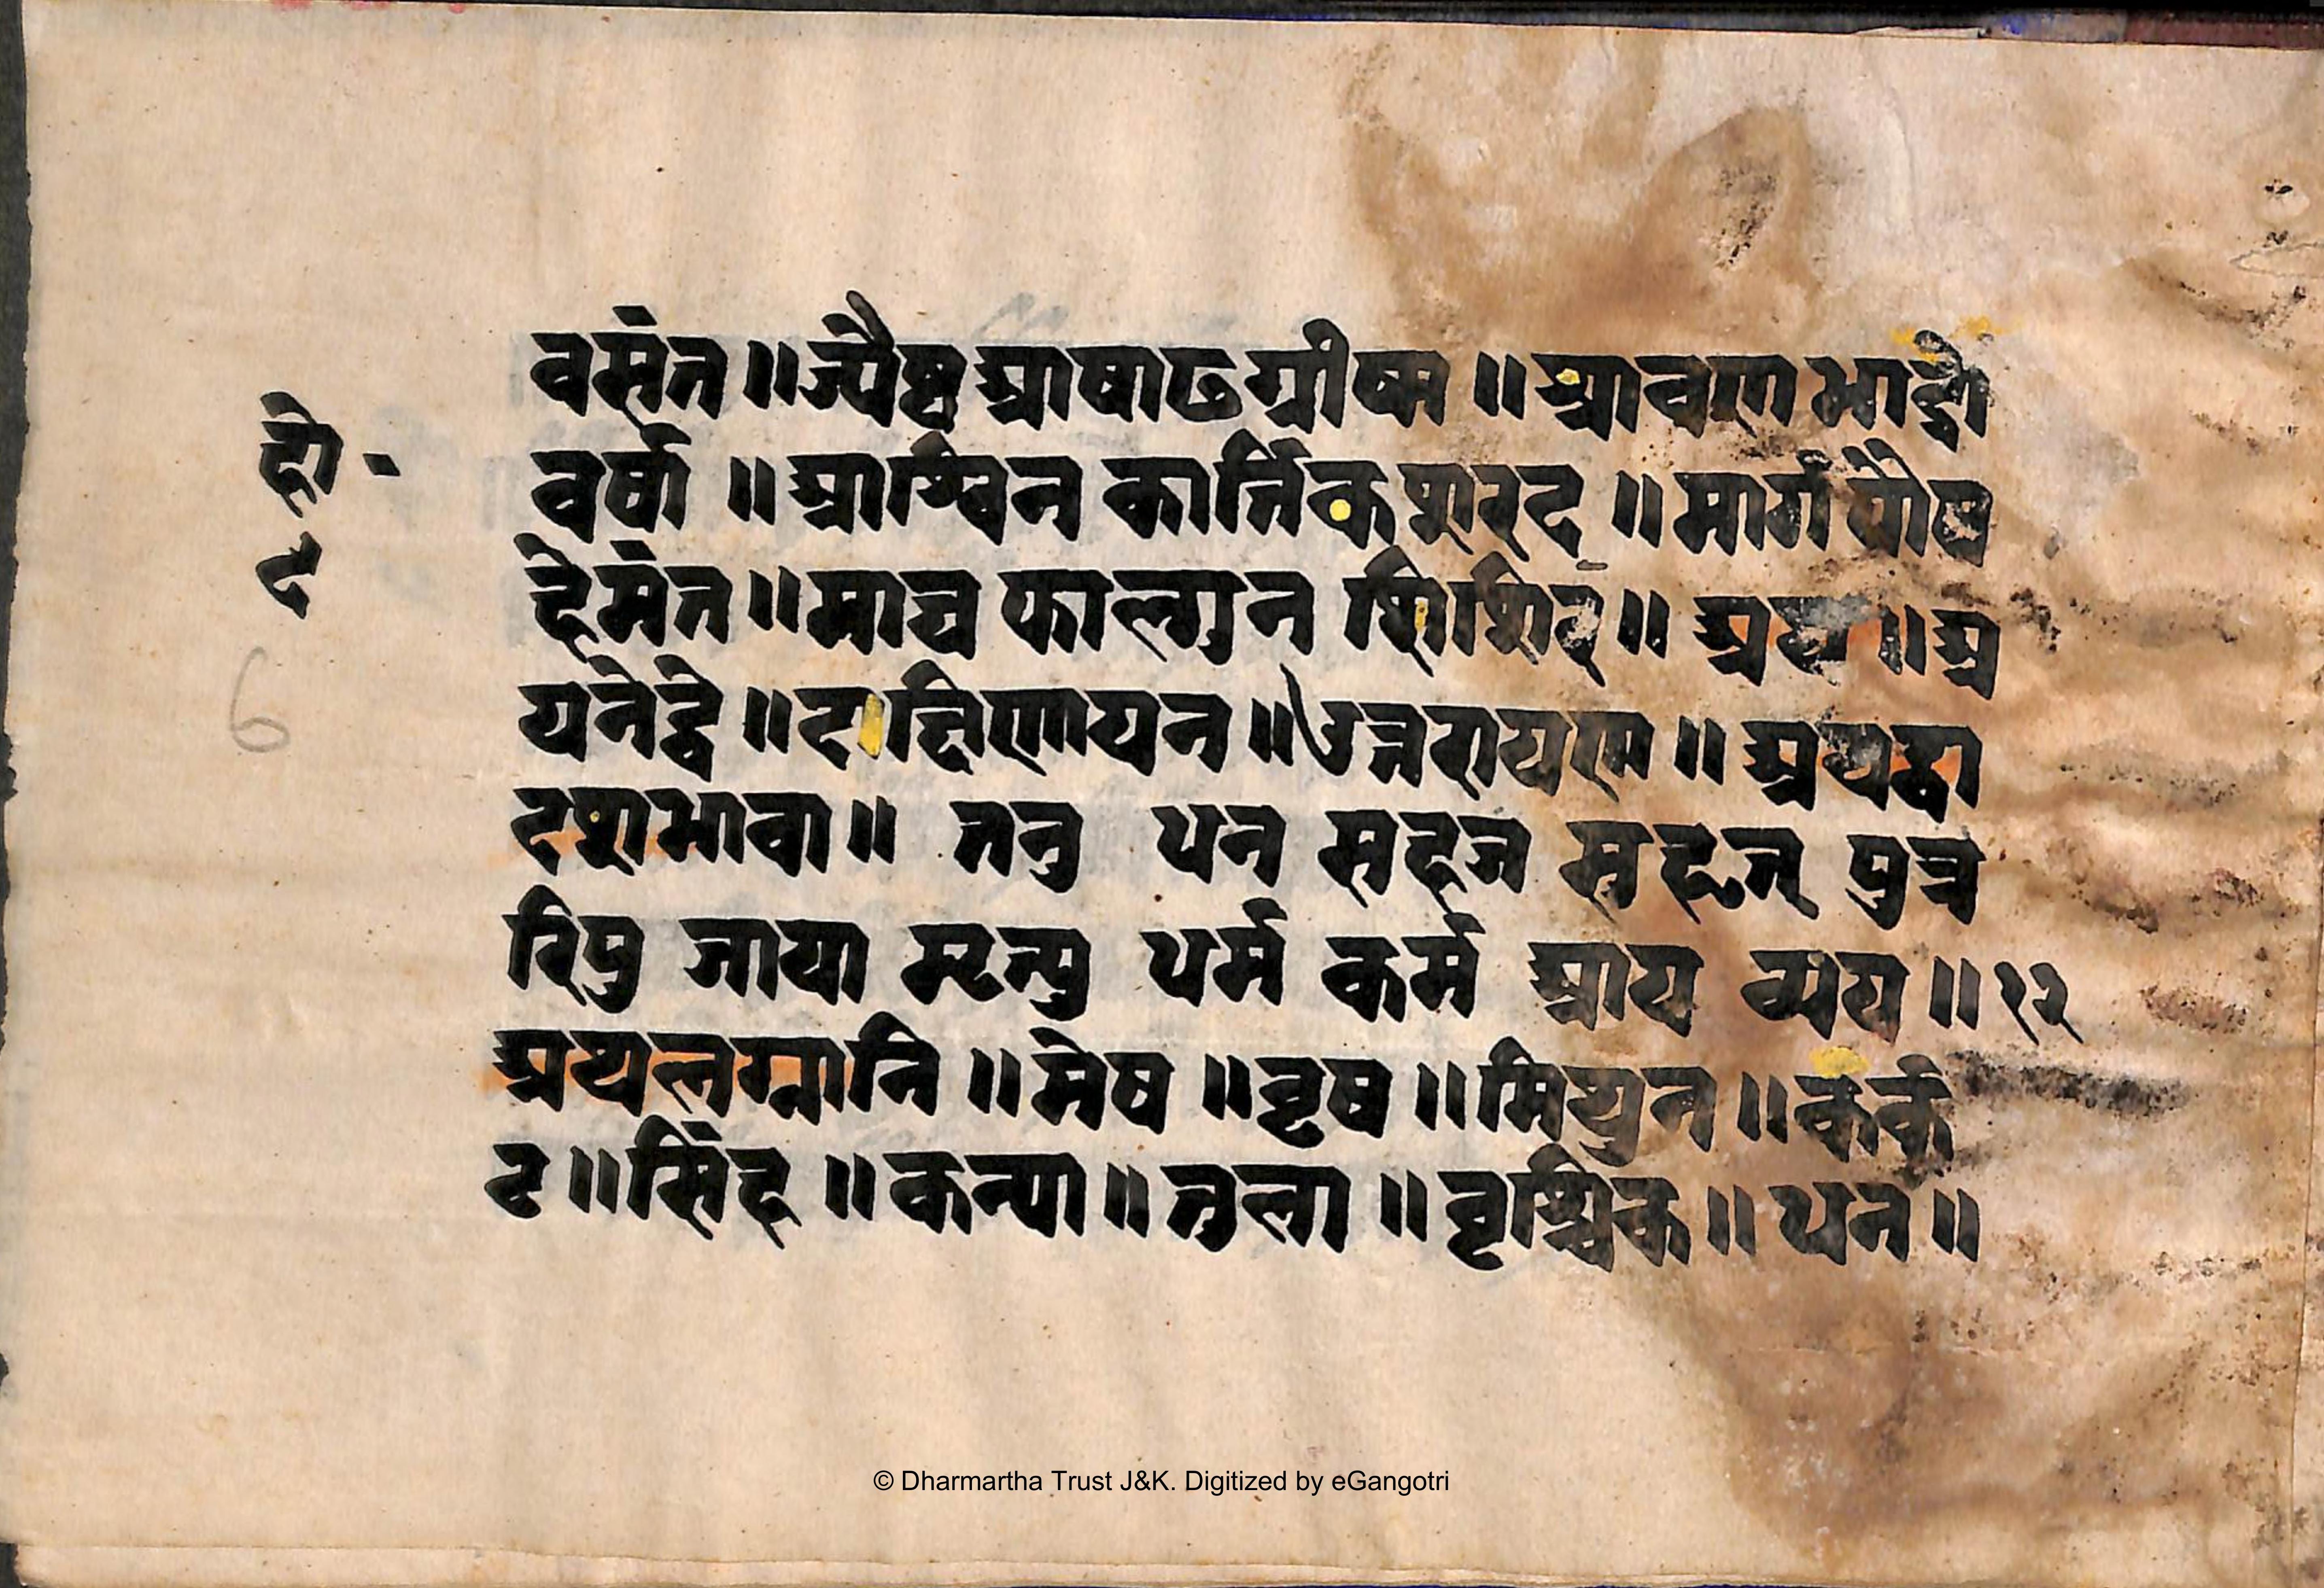 वसंत ॥ ज्यैष्ठ आषाढ ग्रीष्म ॥ श्रावण भाद्रौ
वर्षा ॥ आश्विन कार्त्तिक शरद ॥ मार्ग पौष
हेमंत ॥ माघ फाल्गुन शिशिर ॥ अथ ॥ अ
यनेद्वे ॥ दाक्षिणायन ॥ उत्तरायण ॥ अथद्वा
दशभावा ॥ तनु धन सहज सुहृज् पुत्र
रिपु जाया मृत्यु धर्म कर्म आय व्यय ॥ १२
अथलग्नानि ॥ मेष ॥ वृष ॥ मिथुन ॥ कर्क
ट ॥ सिंह ॥ कन्या ॥ तुला ॥ वृश्चिक ॥ धन ॥
हो
९
6
© Dharmartha Trust J&K. Digitized by eGangotri